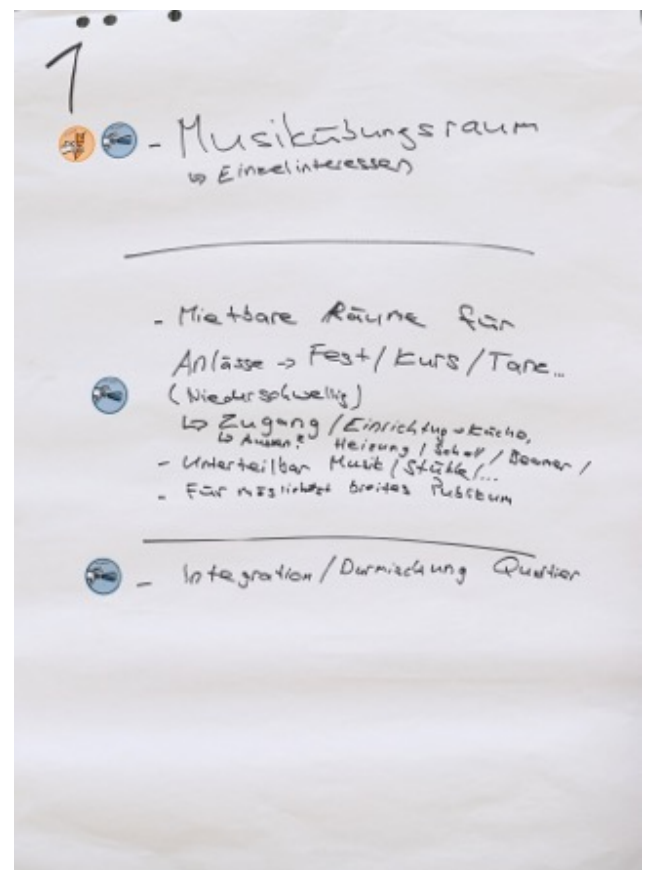 1
- Musikübungsraum
↳ Einzelinteressen
- Mietbare Räume für
Anlässe → Fest/Kurs/Tanz...
(Niederschwellig)
↳ Zugang / Einrichtung → Küche,
↳ Aussen? Heizung / Schall / Beamer /
- Unterteilbar Musik / Stühle / ...
- Für möglichst breites Publikum
- Integration / Durmischung Quartier